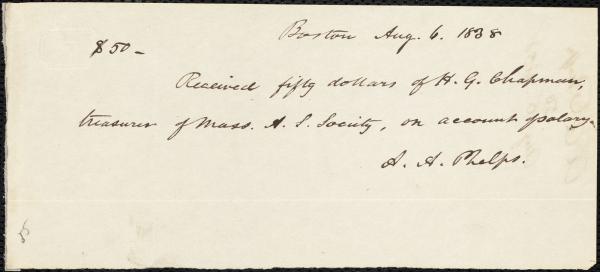 Boston Aug. 6. 1838
$50-
Received fifty dollars of H. G. Chapman,
treasurer of Mass. A. S. Society, on account of salary.
A. A. Phelps.